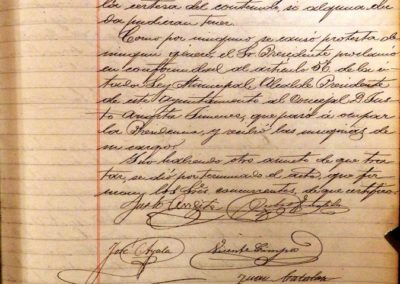 la certeza del contenido si alguna du-
da pudieran tener.
Como por ninguno se causó protesta de
ninguna género, el Sr. Presidente proclamó
en conformidad al artículo 56 de la ci-
tada Ley Municipal, Alcalde Presidente
de este Ayuntamiento al Concejal D. Jus-
to Jimenez, que pasó á ocupar
la Presidencia, y recibió las insignias de
su cargo.
Y no habiendo otro asunto de que tra-
tar, se dió por terminado el acto, que fir-
man los Sres concurrentes, de que certifico.
Justo
José Ayala Vicente Crespo
Juan